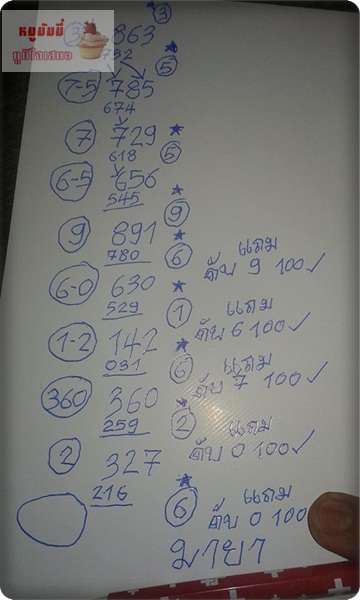 หมูมัมมี่
ภูมิใจเสนอ
3 863 ③
752
★ ⑤
7-5 785
674
7 729 ★
618 ⑤
6-5 656
545 ★
⑨
9 891 ★
780 ⑥ แถม
ดับ 9 100✓
6-0 630 ★
529 ① แถม
ดับ 6 100✓
1-2 142 ★
031 ⑥ แถม
ดับ 7 100✓
360 360 ★
259 ② แถม
ดับ 0 100✓
2 327
216 ★
⑥ แถม
ดับ 0 100
มายา